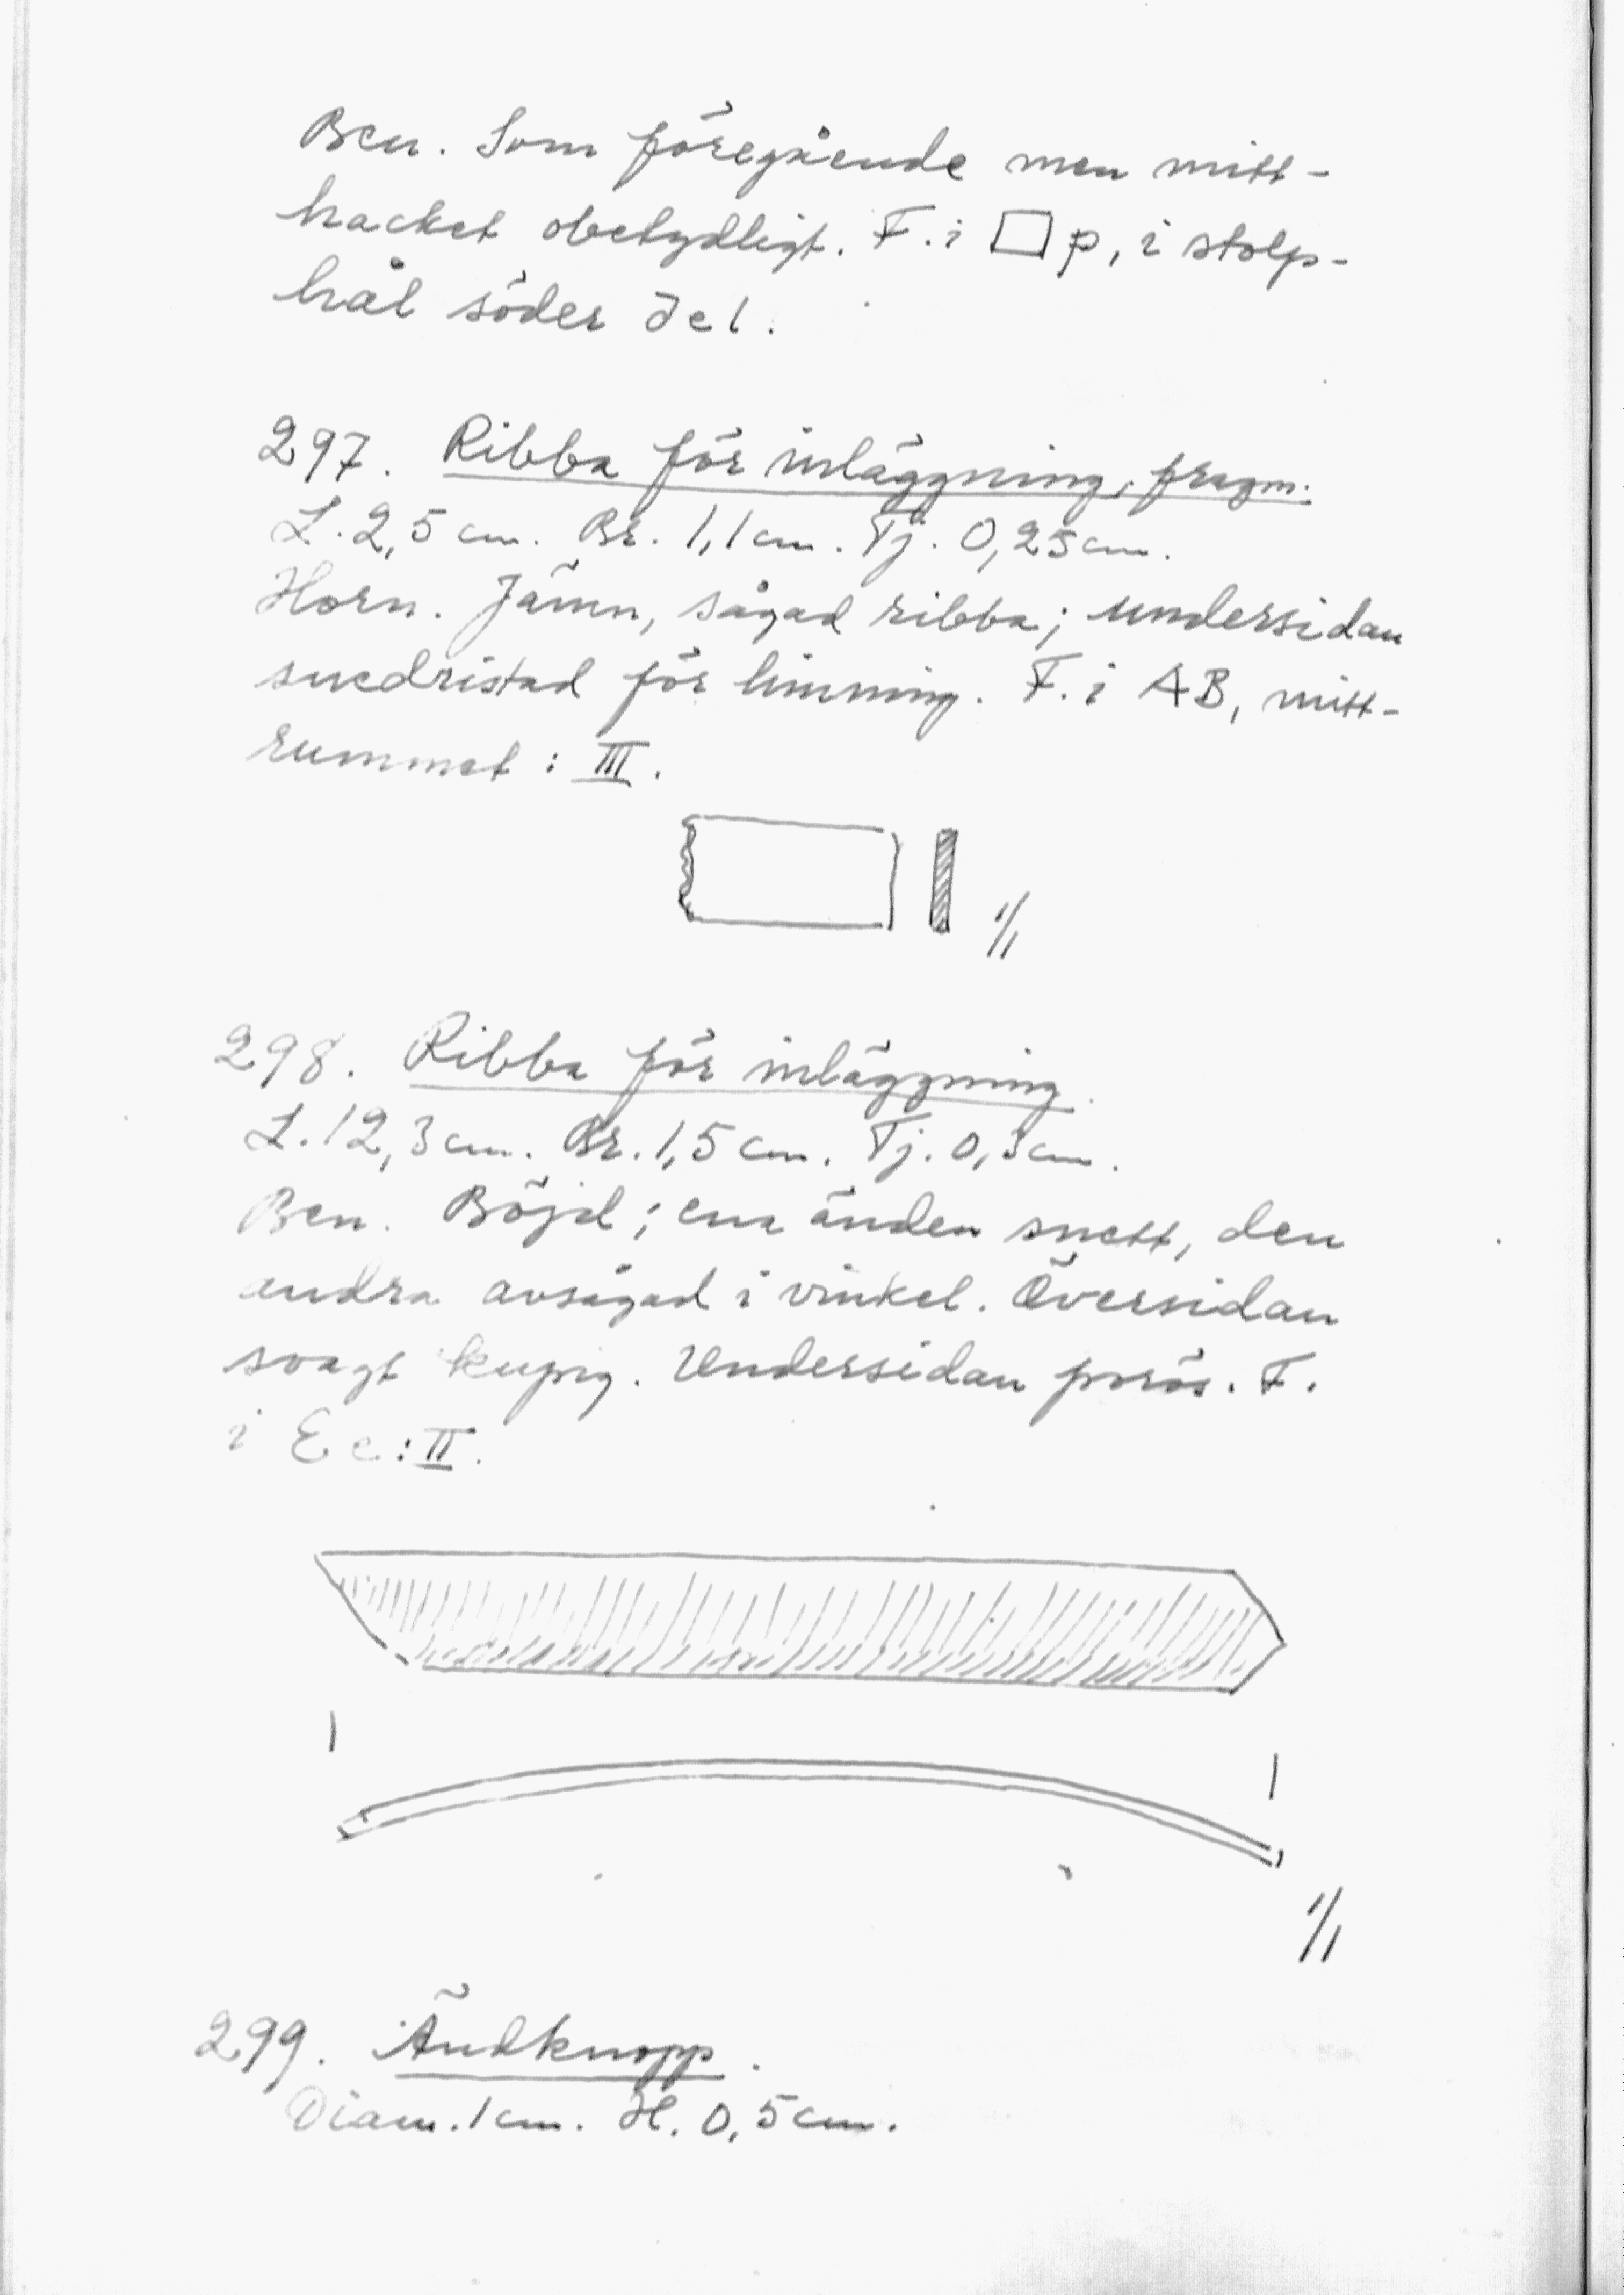 Ben. Som föregående men mitt-
hacket obetydligt. F. i □ p, i stolp-
hål söder del.
297. Ribba för inläggning, fragm.
L. 2,5 cm. Br. 1,1 cm. Tj. 0,25 cm.
Horn. Jämn, sågad ribba; undersidan
snedristad för limning. F. i AB, mitt-
rummet: III.
1/1
298. Ribba för inläggning.
L. 12,3 cm. Br. 1,5 cm. Tj. 0,3 cm.
Ben. Böjd; ena änden snett, den
andra avsågad i vinkel. Översidan
svagt kupig. Undersidan porös. F.
i Ec: II.
1/1
299. Ändknopp.
Diam. 1 cm. H. 0,5 cm.